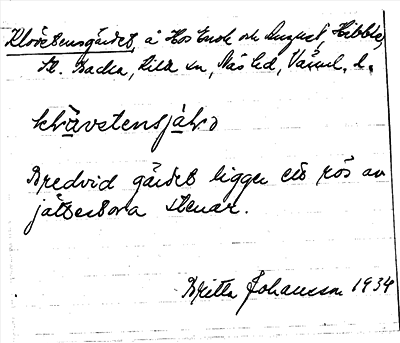 Klövstensgärdet, å Hos Enok och August, Hibble,
St. Backa, Lilla sn, Näs hd, Värml. l.
klövstensjälrɔ
Bredvid gärdet ligger ett rös av
jättestora stenar.
Britta Johansson 1934